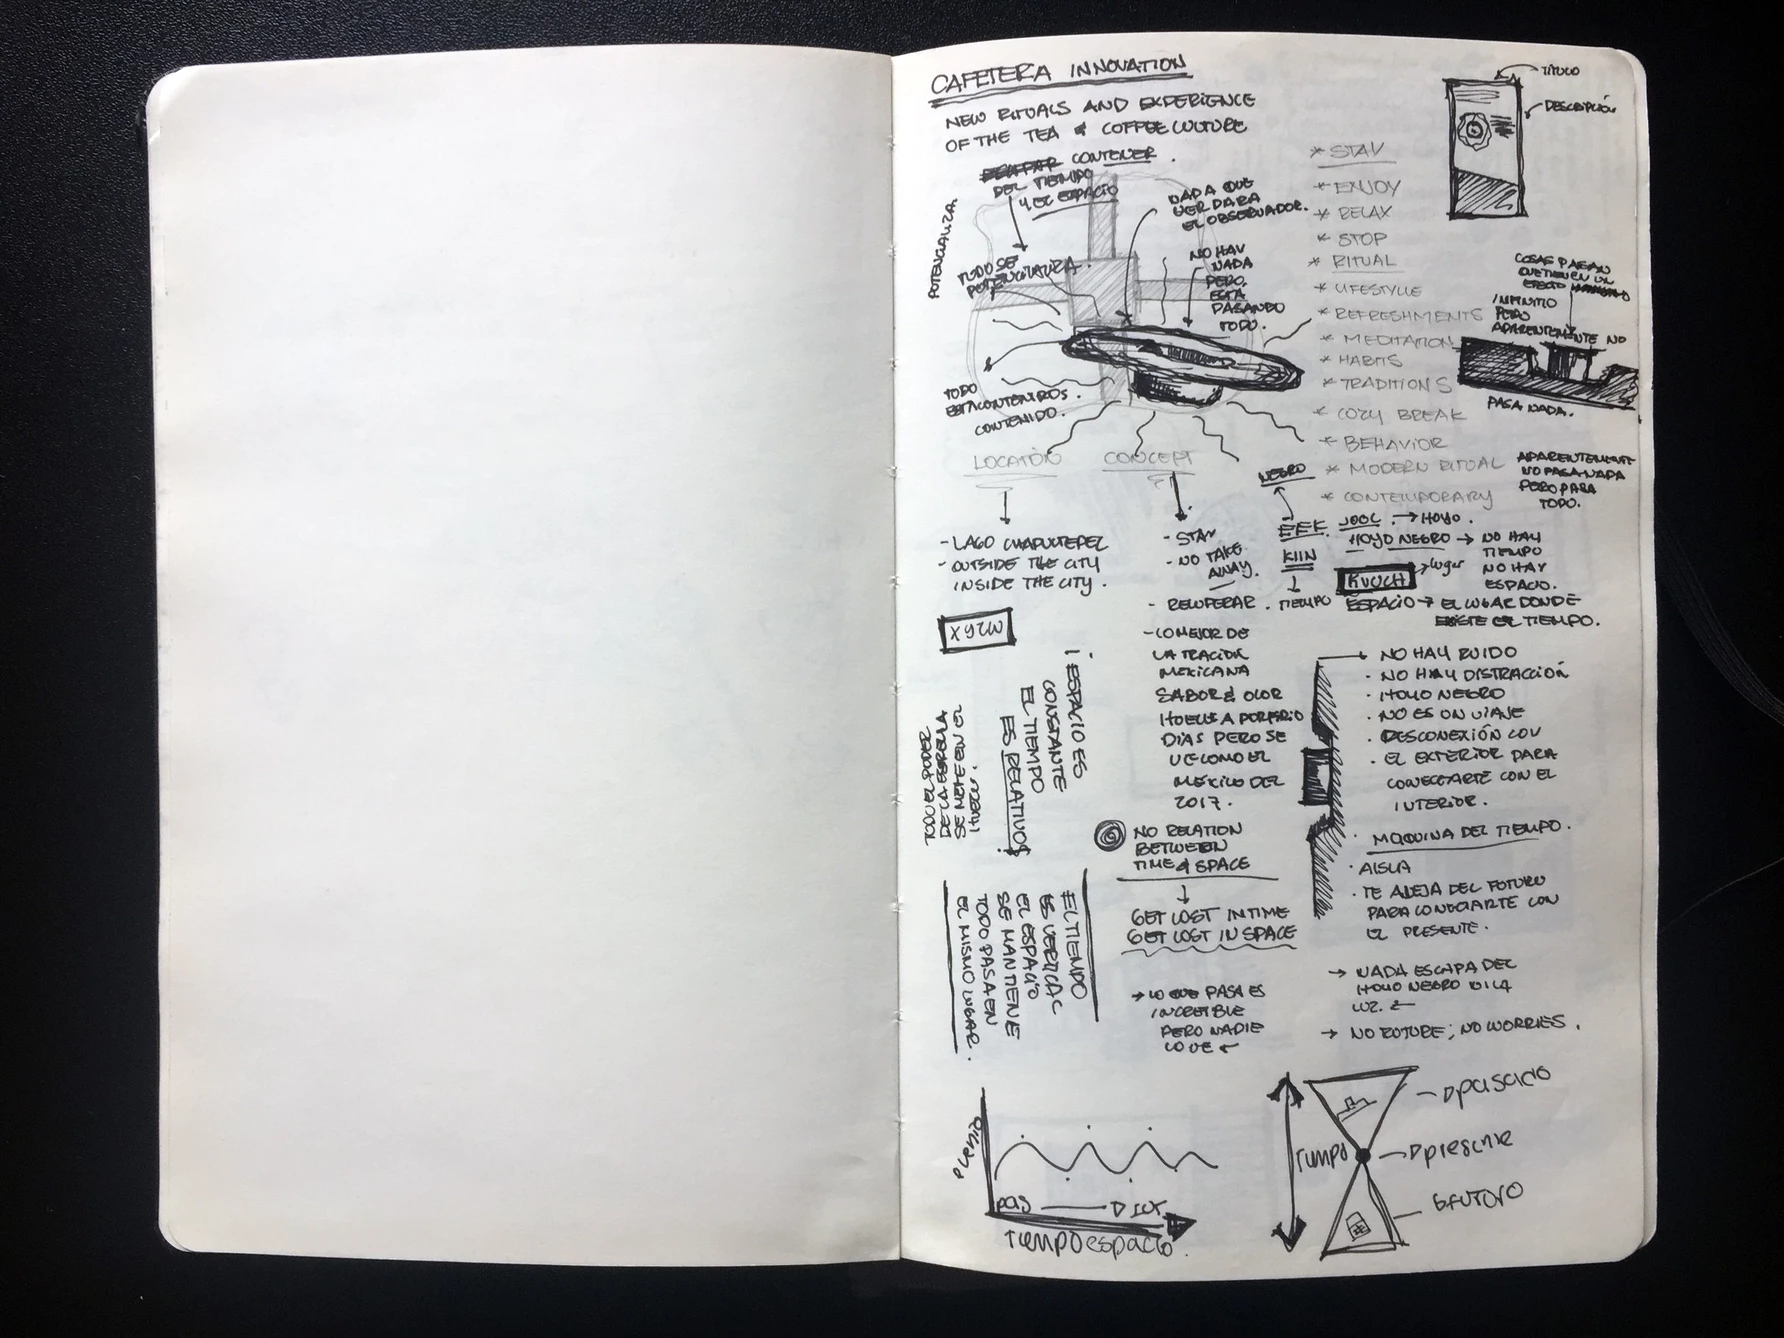 CAFETERA INNOVATION
NEW RITUALS AND EXPERIENCE
OF THE TEA & COFFEE CULTURE
CONTENER.
DEL TIEMPO
Y EL ESPACIO
POTENCIALIZA
TODO SE
POTENCIALIZA.
NADA QUE
VER PARA
EL OBSERVADOR.
NO HAY
NADA
PERO
ESTÁ
PASANDO
TODO.
TODO
CONTENIDO.
TÍTULO
DESCRIPCIÓN
* STAY
* ENJOY
* RELAX
* STOP
* RITUAL
* LIFESTYLE
* REFRESHMENTS
* MEDITATION
* HABITS
* TRADITIONS
* COZY BREAK
* BEHAVIOR
* MODERN RITUAL
* CONTEMPORARY
COSAS PASAN
QUE TIENEN UN
EFECTO
INFINITO
PERO
APARENTEMENTE NO
PASA NADA.
APARENTEMENTE
NO PASA NADA
PERO PASA
TODO.
LOCATION
- LAGO CHAPULTEPEC
- OUTSIDE THE CITY
INSIDE THE CITY.
XYZW
CONCEPT
- STAY
- NO TAKE
AWAY.
- RECUPERAR.
- LO MEJOR DE
LA TRACIÓN
MEXICANA
SABOR & OLOR
HUELE A PORFIRIO
DÍAS PERO SE
VE COMO EL
MÉXICO DEL
2017.
NEGRO
EEK
KIIN
TIEMPO
JOOL → HOYO.
HOYO NEGRO → NO HAY
TIEMPO
NO HAY
ESPACIO.
KUUCH → lugar
ESPACIO → EL LUGAR DONDE
EXISTE EL TIEMPO.
¡ESPACIO ES
CONSTANTE
EL TIEMPO
ES RELATIVO!
TODO EL PODER
DE LA ESTRELLA
SE METE EN EL
HUECO.
NO RELATION
BETWEEN
TIME & SPACE
GET LOST IN TIME
GET LOST IN SPACE
→ LO QUE PASA ES
INCREIBLE
PERO NADIE
LO VE ←
EL TIEMPO
ES VERTICAL
EL ESPACIO
SE MANTIENE
TODO PASA EN
EL MISMO LUGAR.
→ NO HAY RUIDO
· NO HAY DISTRACCIÓN
· HOYO NEGRO
· NO ES UN VIAJE
· DESCONEXIÓN CON
· EL EXTERIOR PARA
CONECTARTE CON EL
INTERIOR.
· MAQUINA DEL TIEMPO.
· AISLA
· TE ALEJA DEL FUTURO
PARA CONECTARTE CON
EL PRESENTE.
→ NADA ESCAPA DEL
HOYO NEGRO NI LA
LUZ. ←
→ NO FUTURE; NO WORRIES.
TIEMPO espacio.
Tiempo
pasado
presente
futuro